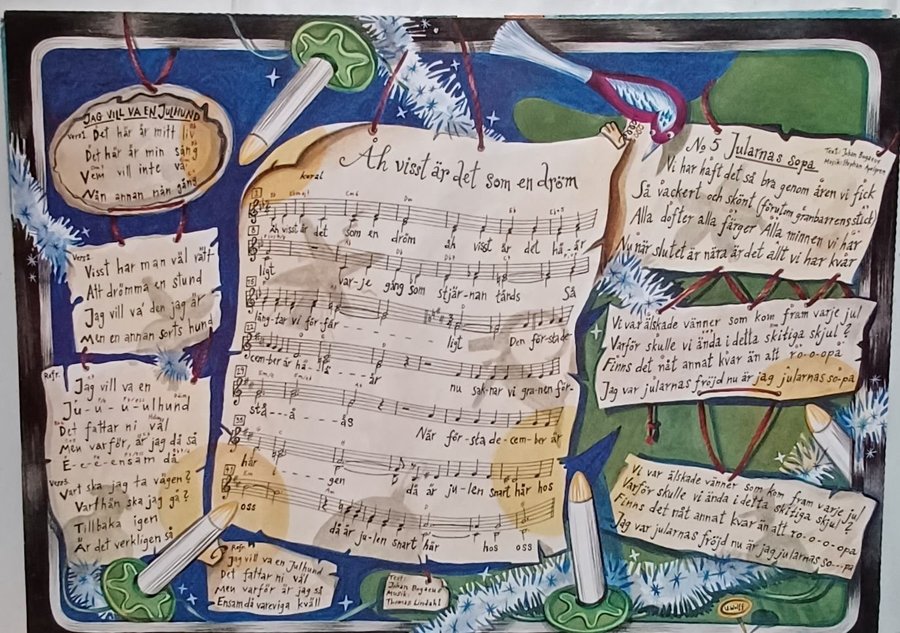 JAG VILL VA EN JULHUND
Vers1 Det här är mitt liv
Det här är min säng
Vem vill inte va
Nån annan nån gång
Vers2
Visst har man väl rätt
Att drömma en stund
Jag vill va' den jag är
Men en annan sorts hund
Refr.
Jag vill va en
Ju-u-u-ulhund
Det fattar ni väl
Men varför, är jag då så
E-e-e-ensam då
Vers3
Vart ska jag ta vägen?
Vart hän ska jag gå?
Tillbaka igen
Är det verkligen så
Refr.
Jag vill va en Julhund
Det fattar ni väl
Men varför är jag så
Ensam då vareviga kväll
Åh visst är det som en dröm
koral
Åh visst är det som en dröm åh visst är det hä-är
ligt var-je gång som stjär-nan tänds Så
läng-tar vi för-fär ligt Den förstade-
cember är hä-llä är nu sak-nar vi gra-nen för-
stå---å ås När för-sta de-cem-ber är
här gen då är ju-len snart här hos
oss då är ju-len snart här hos oss
Text:
Johan Bogaeus
Musik:
Thomas Lindahl
No 5 Jularnas sopa
Text: Johan Bogaeus
Musik: Stephan Apelgren
Vi har haft det så bra genom åren vi fick
Så vackert och skönt (förutom granbarrens stick)
Alla dofter alla färger Alla minnen vi här
Nu när slutet är nära är det allt vi har kvar
Vi var älskade vänner som kom fram varje jul
Varför skulle vi ända i detta skitiga skjul?
Finns det nåt annat kvar än att ro-o-opa
Jag var jularnas fröjd nu är jag jularnas so-pa
Vi var älskade vänner som kom fram varje jul
Varför skulle vi ända i detta skitiga skjul?
Finns det nåt annat kvar än att ro-o-o-opa
Jag var jularnas fröjd nu är jag jularnas so---pa